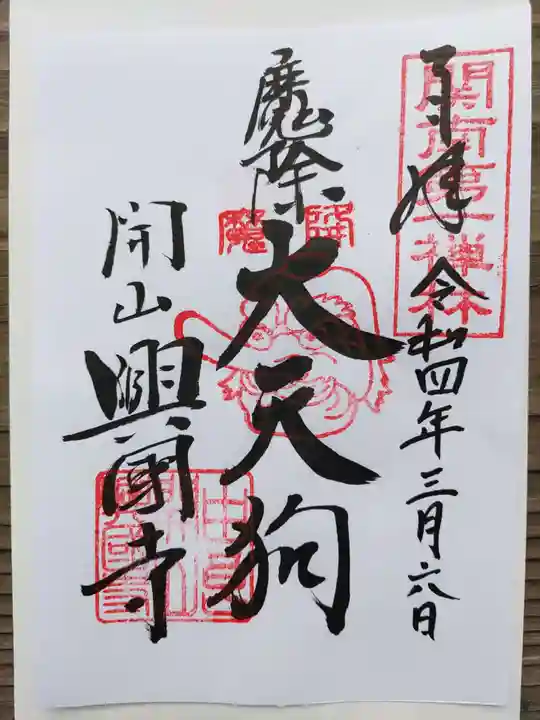 奉拝 令和四年三月六日
関南第一禅林
魔除 大天狗
降魔
開山 興國寺